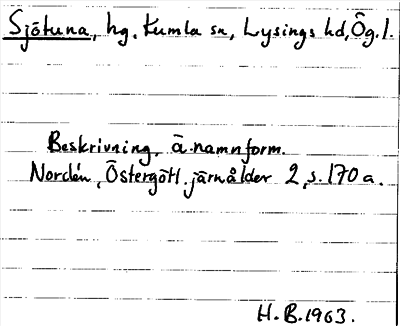 Sjötuna, hg. Kumla sn, Lysings hd, Ög. l.
Beskrivning, ä. namnform.
Nordén, Östergötl. järnålder 2, s. 170 a.
H. B. 1963.